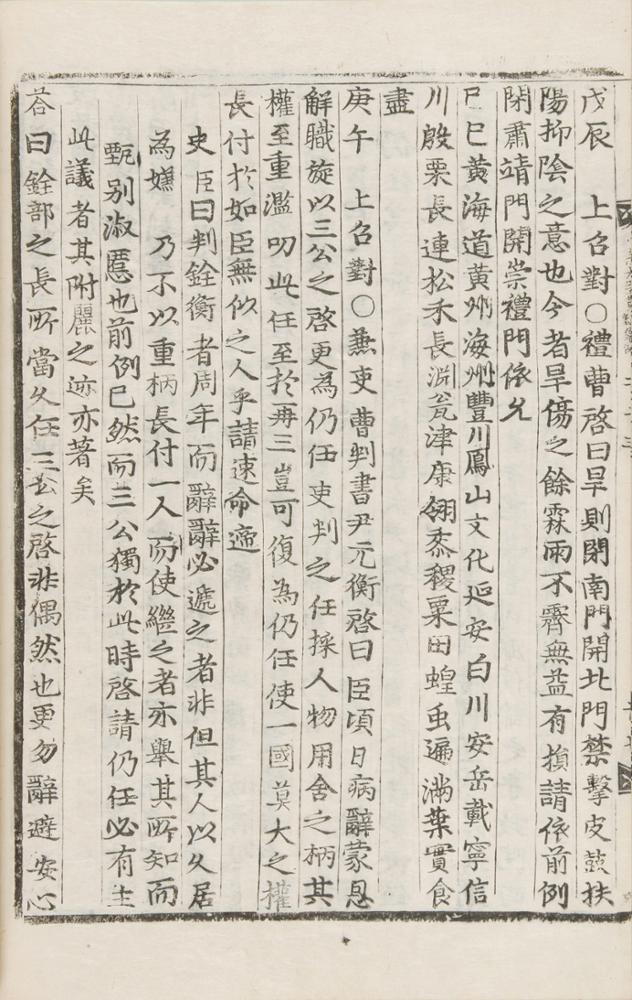 戊辰　上召對○禮曹啓曰旱則閉南門開北門禁擊皮鼓扶
陽抑陰之意也今者旱傷之餘霖雨不霽無益有損請依前例
閉肅靖門開崇禮門依允
己巳黃海道黃州海州豐川鳳山文化延安白川安岳載寧信
川殷栗長連松禾長淵瓮津康翎黍稷粟田蝗虫遍滿葉實食
盡
庚午　上召對○兼吏曹判書尹元衡啓曰臣頃日病辭蒙恩
解職旋以三公之啓更為仍任吏判之任採人物用舍之柄其
權至重濫叨此任至於再三豈可復為仍任使一國莫大之權
長付於如臣無似之人乎請速命遞
史臣曰判銓衡者周年而辭辭必遞之者非但其人以久居
為嫌　乃不以重柄長付一人而使繼之者亦舉其所知而
甄別淑慝也前例已然而三公獨於此時啓請仍任必有主
此議者其附麗之迹亦著矣
答曰銓部之長所當久任三公之啓非偶然也更勿辭避安心